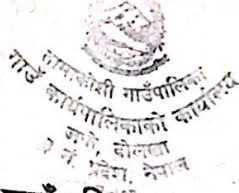 तामाकोशी गाउँपालिका
गाउँ कार्यपालिकाको कार्यालय
जफे, दोलखा
३ नं. प्रदेश, नेपाल